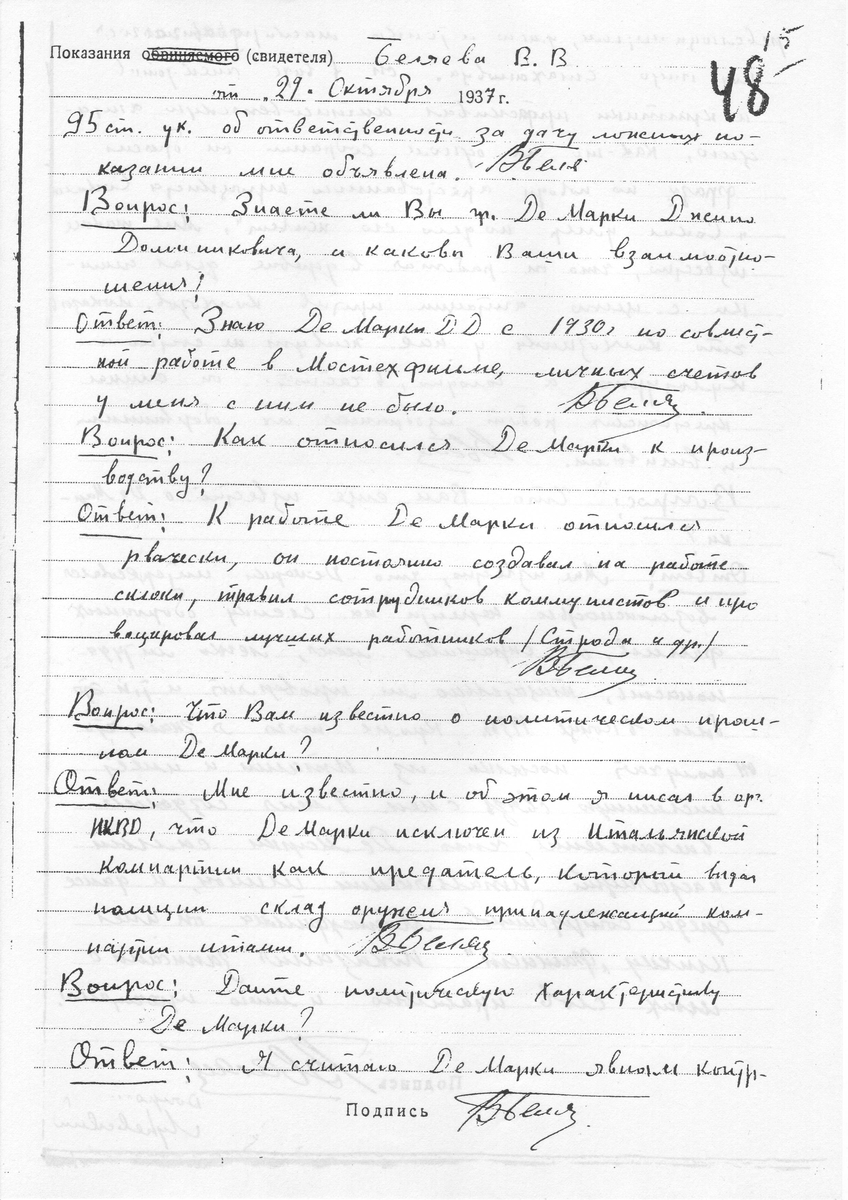 15
48
Показания обвиняемого (свидетеля) Беляева В. В
от „29. Октября 1937 г.
95 ст. ук. об ответственности за дачу ложных по-
казании мне объявлена. ВБеля
Вопрос: Знаете ли Вы гр. Де Марки Джино
Доминиковича, и каковы Ваши взаимоотно-
шения?
Ответ: Знаю Де Марки ДД с 1930г по совмест-
ной работе в Мостехфильме, личных счетов
у меня с ним не было. ВБеля
Вопрос: Как относился Де Марки к произ-
водству?
Ответ: К работе Де Марки относился
рвачески, он постоянно создавал на работе
склоки, травил сотрудников коммунистов и про
вацировал лучших работников /Строда и др./
ВБеля
Вопрос: Что Вам известно о политическом прош-
лом Де Марки?
Ответ: Мне известно, и об этом я писал в ор.
НКВД, что Де Марки исключен из Итальянской
компартии как предатель, который выдал
полиции склад оружия принадлежащий ком-
партии италии. ВБеля
Вопрос: Дайте политическую характеристику
Де Марки?
Ответ: Я считаю Де Марки явным контр-
Подпись ВБеля